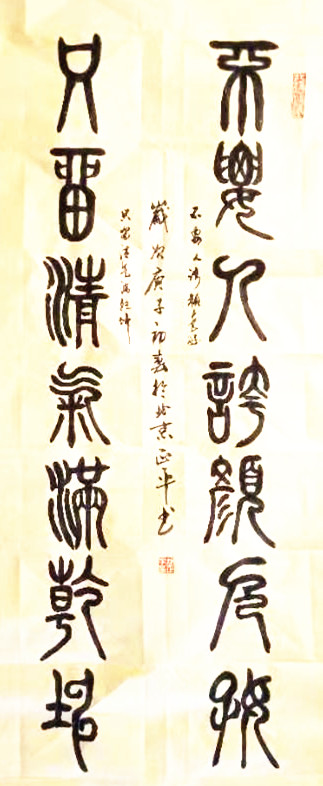 不要人誇顏色好
不要人誇顏色好
歲次庚子初春於北京正平书
只留清氣滿乾坤
只留清氣滿乾坤